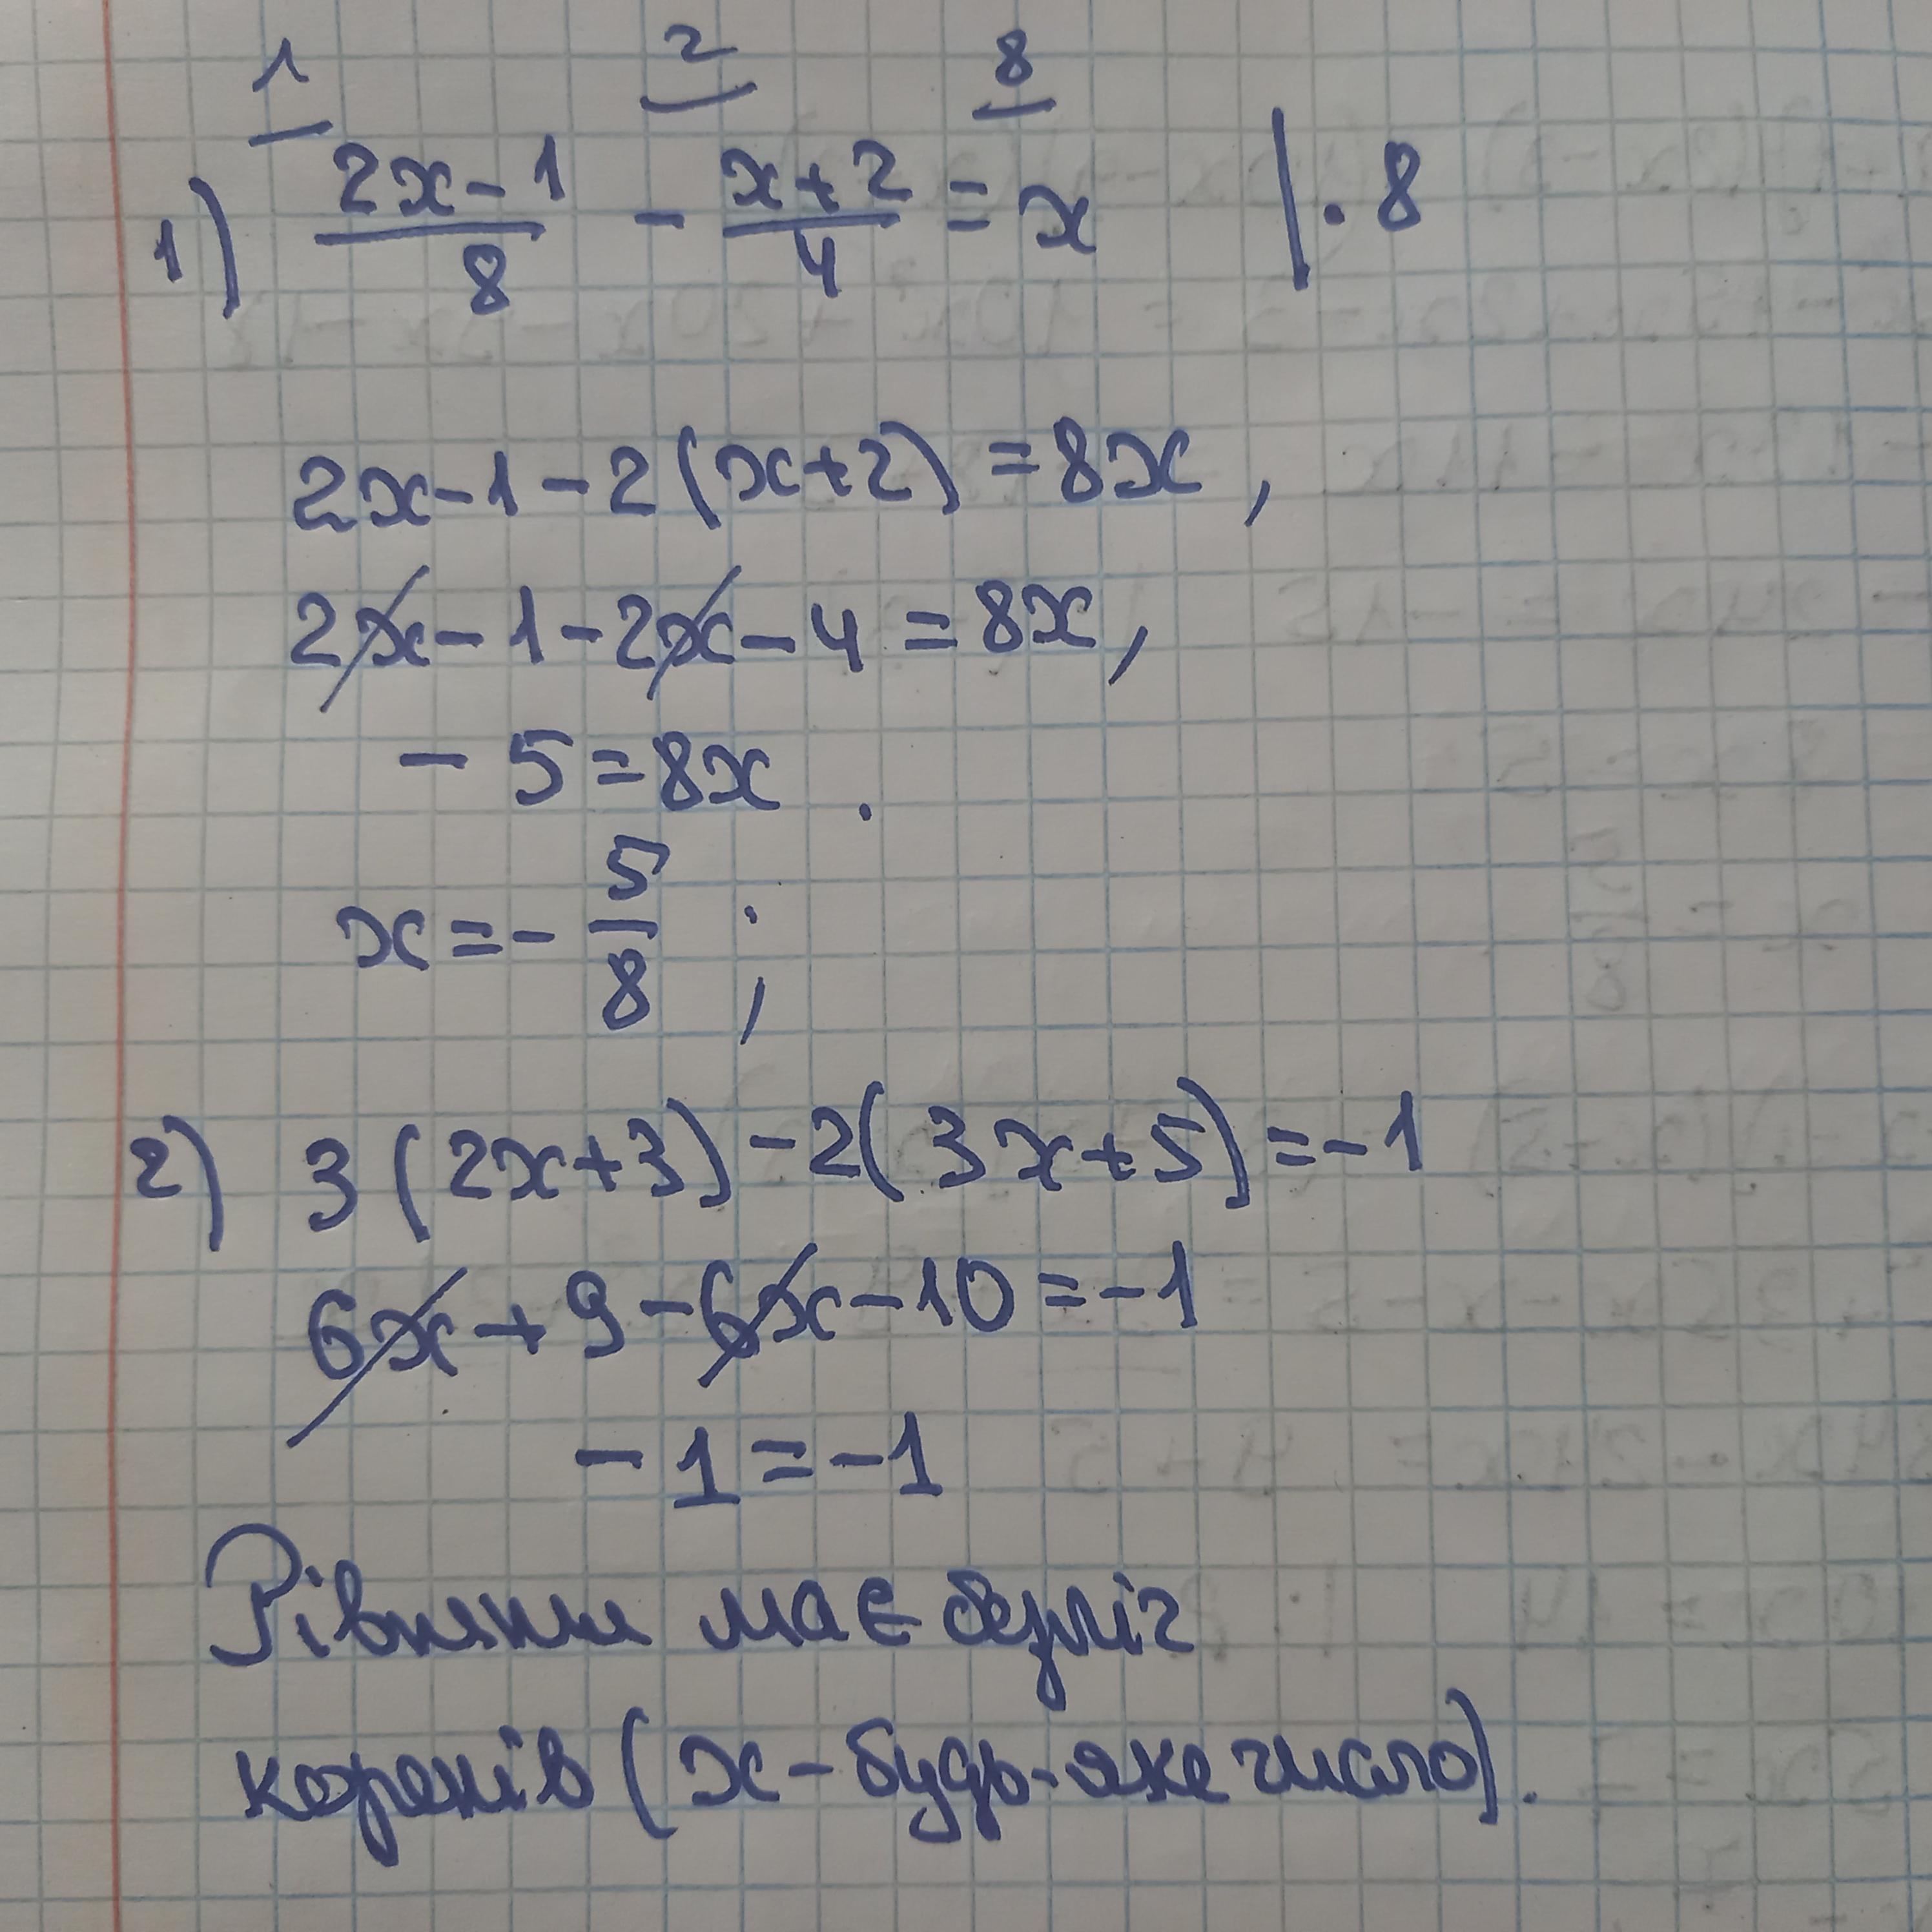 1 2 8
1) (2x-1)/8 - (x+2)/4 = x | · 8
2x-1-2(x+2)=8x,
2x-1-2x-4=8x,
-5=8x.
x=-5/8;
2) 3(2x+3)-2(3x+5)=-1
6x+9-6x-10=-1
-1=-1
Рівняння має безліч
коренів (x-будь-яке число).